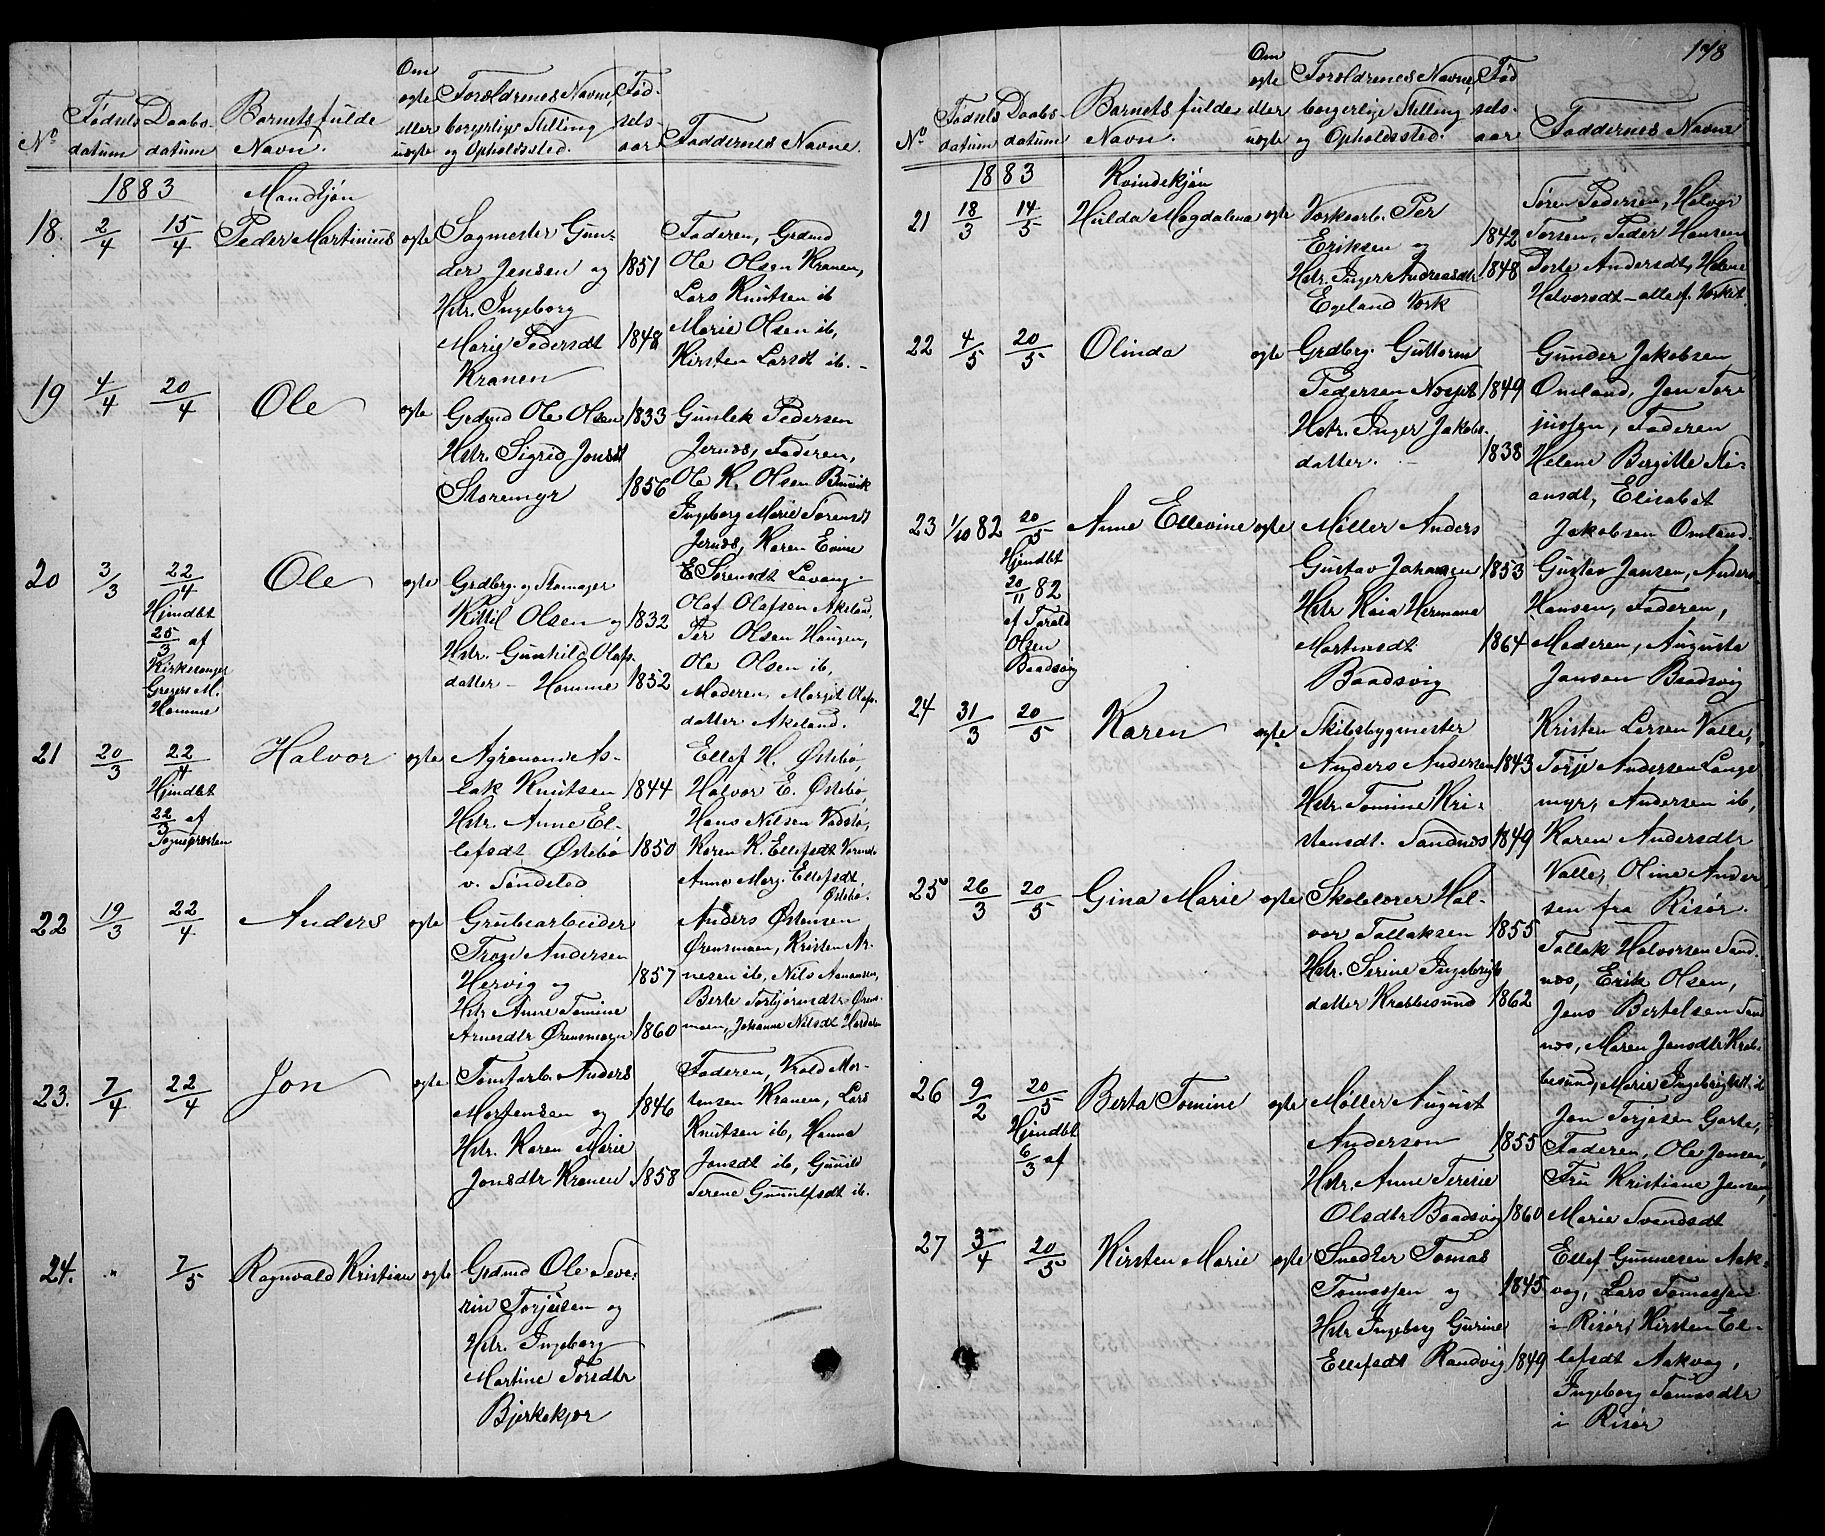 No Fødselsdatum Daabsdatum Barnets fulde Navn. Om ægte eller uægte Forældrenes Navne, borgerlige Stilling og Opholdssted. Fødselsaar Faddernes Navne.
1883 Mandkjøn
18. 2/4 15/4 Peder Martinius ægte
Sagmester Gun-
der Jensen og 1851
Hstr. Ingeborg
Marie Pedersdt 1848
Kranen
Faderen, Grdmd
Ole Olsen Kranen,
Lars Knutsen ib
Marie Olsen ib,
Kirsten Larsdt ib.
19 4/4 20/4 Ole ægte
Grdmd Ole Olsen 1833
Hstr. Sigrid Jonsdt
Storemyr 1856
Gunlek Pedersen
Jernæs, Faderen,
Ole K. Olsen
Ingeborg Marie Sørensdt
Jernæs, Karen
Sørensdt Lavang.
20 3/3 22/4 Ole ægte
Hjemdbt
25/3 af
Kirkesanger
Gregers M.
Homme
Grdberg. og
Kittil Olsen og 1832
Hstr. Gunhild Olafs-
datter - Homme 1832
Olaf Olafsen Akeland,
Per Olsen Haugen,
Ole Olsen ib,
Moderen, Margit Olafs-
datter Akeland.
21 20/3 22/4 Halvor ægte
Hjemdbt
22/3 af
Sognepresten
Agronom As-
lak Knutsen 1844
Hstr. Anne El-
lefsdt Østebø 1850
v. Søndeled
Ellef H. Østebø,
Halvor E. Østebø,
Hans Nilsen
Karen K. Ellefsdt
Anne Marg. Ellefsdt
Østebø.
22 19/3 22/4 Anders ægte
Grubearbeider
Andersen
Hervig og 1857
Hstr Anne Tomine
Arnesdtr Ørensmoen 1860
Anders Østensen
Ørensmoen, Kristen Ar-
nesen ib, Nils Aanonsen,
Berte Torbjørnsdtr Ørens-
moen, Johanne Nilsdt
23. 7/4 22/4 Jon ægte
Tomtarb. Anders
Mortensen og 1846
Hstr. Karen Marie
Jonsdtr Kranen 1858
Faderen, Vrold Mor-
tensen Kranen, Lars
Knutsen ib, Hanna
Jonsdt ib,
Serene Gunulfsdt ib.
24. " 7/5 Ragnvald Kristian ægte
Grdmd Ole Seve-
rin Torjusen og
Hstr. Ingeborg
Martine Torsdtr
Bjerkekjær
178
No Fødselsdatum Daabsdatum Barnets fulde Navn. Om ægte eller uægte Forældrenes Navne, borgerlige Stilling og Opholdssted. Fødselsaar Faddernes Navne
1883 Kvindekjøn
21 18/3 14/5 Hulda Magdalena ægte
Værksarb. Per
Eriksen og 1842
Hstr. Inger Andreasdtr 1848
Egeland Værk
Søren Pedersen, Halvor
Torsen, Peder Hansen
Andersdt, Helene
Halvorsdt - alle f. Værket
22 4/5 20/5 Olinda ægte
Grdberg. Guttorm
Pedersen 1849
Hstr. Inger Jakobs-
datter. 1838
Gunder Jakobsen
Omland, Jon Tor-
jussen, Faderen
Helene Birgitte Sti-
ansdt, Elisabet
Jakobsen Omland.
23 1/10 82 20/5 Anne Ellevine ægte
Hjemdbt
20/11 82
af Tarald
Olsen
Baadsvig
Møller Anders
Gustav Johansen 1853
Hstr Kaia Hermana
Martinsdt 1864
Baadsvig
Gustav Jansen, Anders
Hansen, Faderen,
Moderen, Auguste
Jansen Baadsvig
24 31/3 20/5 Karen ægte
Skibsbygmester
Anders Andersen 1843
Hstr. Tomine Kri-
stensdt. Sandnæs 1849
Kristen Larsen Valle,
Torje Andersen Lange
myr, Andersen ib,
Karen Andersdtr
Valle, Oline Ander-
sen fra Risør.
25 26/3 20/5 Gina Marie ægte
Skolelærer Hal-
vor Tallaksen 1855
Hstr. Serine Ingebrigts
datter Krabbesund 1862
Tallak Halvorsen Sand-
næs, Erik Olsen,
Jens Bertelsen Sand
næs, Maren Jensdtr Krab-
besund, Marie Ingebrigtsdt ib
26 9/2 20/5 Berta Tomine ægte
Hjemdbt
6/3 af
Møller August
Anderson 1855
Hstr. Anne Teresie
Olsdtr Baadsvig 1860
Jon Torjesen Garta,
Faderen, Ole Jonsen,
Fru Kristiane Jensen,
Marie Svendsdt
27 3/4 20/5 Kirsten Marie ægte
Snedker Tomas
Tomassen og 1845
Hstr Ingeborg Gurine
Ellefsdt Randvig 1849
Ellef Gunnesen Aak-
vag, Lars Tomassen
i Risør, Kirsten El-
lefsdt Aakvag,
Ingeborg Tomasdtr
i Risør